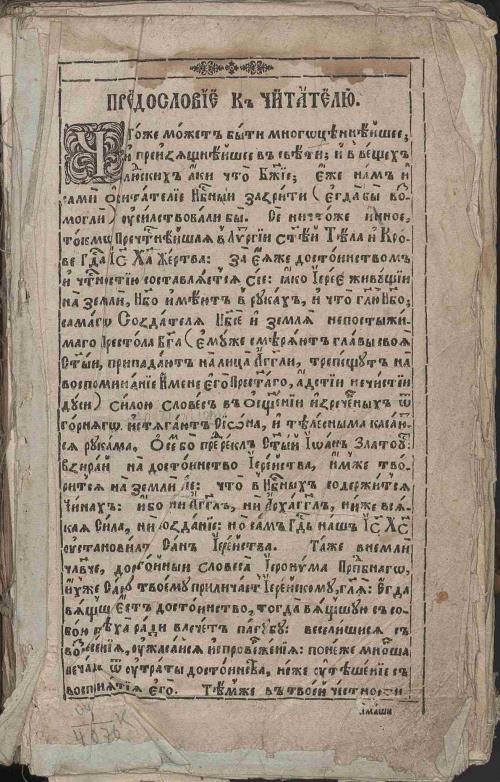 ПРЕДОСЛОВІЕ Къ ЧИТАТЕЛЮ.
Чтоже можетъ быти многоцѣннѣйшее,
и преизящнѣйшее въ свѣтѣ; и въ вещехъ
людскихъ аки что Бж҃іе; еже намъ и
сами Обитателіе Нб҃ныи завидѣти ( егда бы
могли ) усилствовали бы. Се ничтоже иное,
токмѡ Пречⷭ҇тнѣйшая в Лѵⷮргіи Ст҃ѣй Тѣла и Кро-
ве Гдⷭ҇а Іс҃ Ха҃ Жертва: За Еяже достоинствомъ
и чтⷭ҇ностію составляется сіе: іако Іерее живущіи
на земли, Нб҃о имѣютъ в рукахъ, и что гл҃ю Нб҃о;
самагѡ Создателя Нб҃се и земля непостыжи-
маго Престола Бг҃а ( Емуже смѣряютъ главы своя
Ст҃ыи, припадаютъ на лица Аг҃гли, трепещутъ на
воспоминаніе Имене Егѡ Прест҃аго, адстіи нечистіи
дуси ) силою словесъ въ Ѻсщ҃еніи изреченыхъ ѿ
горнягѡ истягаютъ Сіѡна, и тѣлесныма касаю-
ся рукама. Ѻсебо прⷣрекаъ Ст҃ый Іѡанъ Златоуⷭ҇:
взирай на достоинство Іерейства, имже тво-
рится на земли се: что в Нб҃ныхъ содержится
Чинахъ: ибо ни Аг҃глъ, ни Арха҃гглъ, ниже вся-
кая Сила, ни созданіе: но самъ Гдⷭ҇ь нашъ Іс҃ Хс҃
оустановилъ Санъ Іерейства. Таже внемли
чавче, достойныи словеса Іеронѵма Прⷣбнагѡ,
иуже Сану твоему приличаетъ Іерейскому, гл҃я: Егда
вящш Естъ достоинство, тогда вящшую съ со-
бою грѣха ради влечетъ пагубу: веселишися съ
возⷩесенія, оужасайся испроверженія: понеже многша
печаль ѿ оутраты достоинства, неже оутѣшеніе съ
воспріятія его. Тѣмже въ твоей честности
имаши
4076